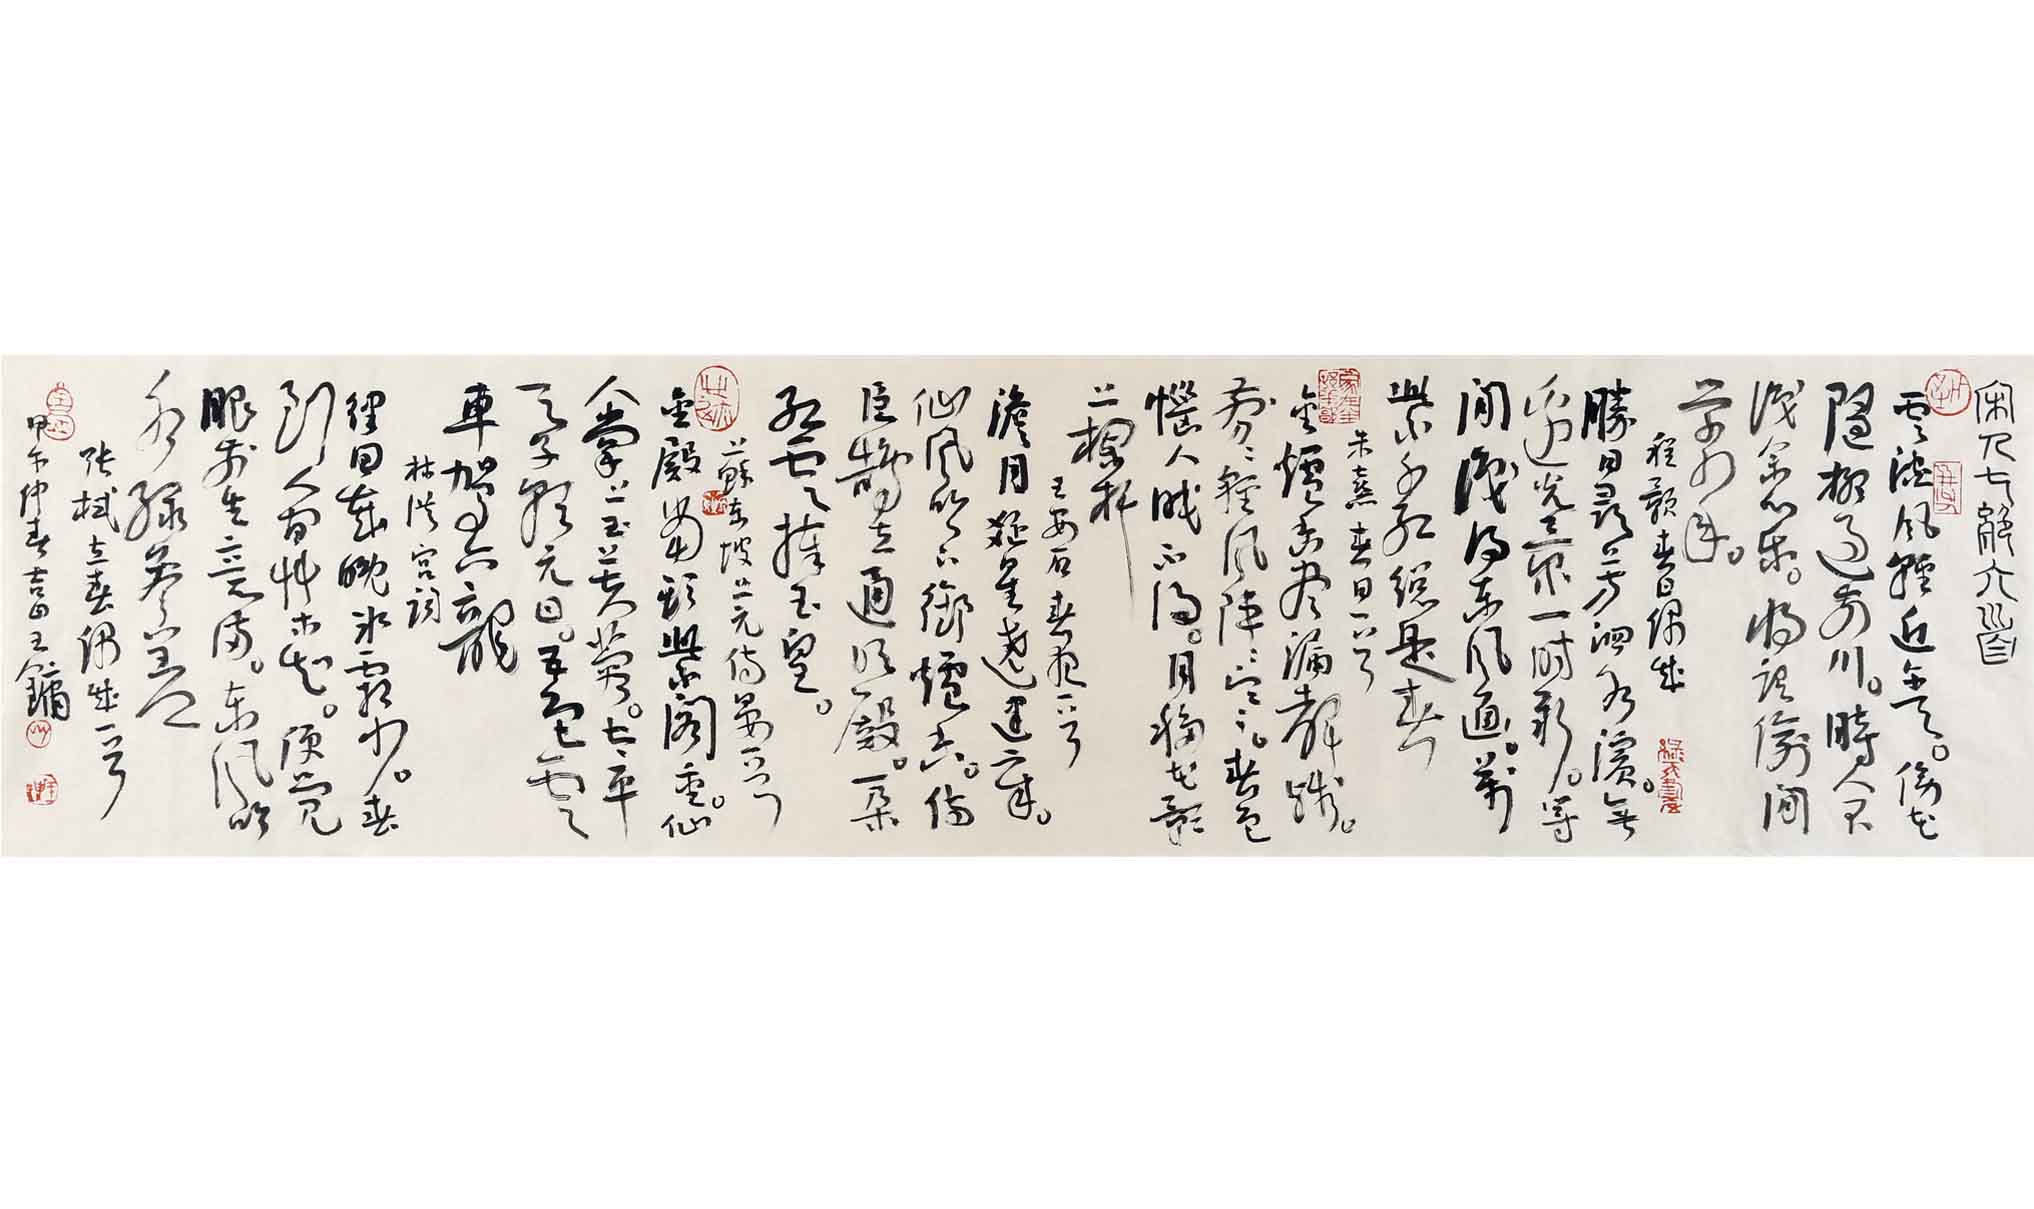 宋人七絕六首
雲淡風輕近午天。傍花
隨柳過前川。時人不
識余心樂。將謂偷閒
學少年。
程顥春日偶成
勝日尋芳泗水濱。無
邊光景一時新。等
閒識得東風面。萬
紫千紅總是春
朱熹春日一首
金爐香盡漏聲殘。
翦〻輕風陣〻寒。春色
惱人眠不得。月移花影
上欄杆
王安石春夜一首
澹月疏星遶建章。
仙風吹下御爐香。侍
臣鵠立通明殿。一朵
紅雲捧玉皇。
蘇東坡上元侍宴一首
金殿當頭紫閣重。仙
人掌上玉芙蓉。太平
天子朝元日。五色雲
車駕六龍
林洪宮詞
律回歲晚冰霜少。春
到人間艸木知。便覺
眼前生意滿。東風吹
水綠參差
張栻立春偶成一首
甲午仲春吉日王鏞